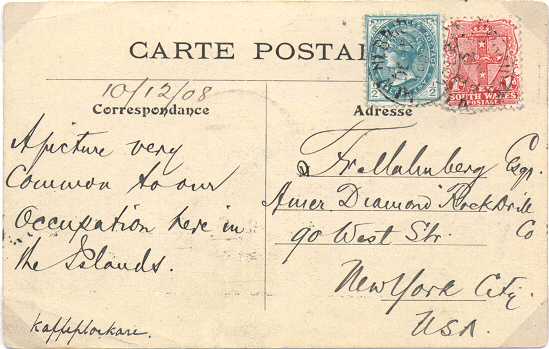 CARTE POSTALE
10/12/08
Correspondance
Adresse
SOUTH WALES
POSTAGE
A picture very
Common to our
Occupation here in
the Islands.
Esqr.
Amer Diamond Rock Drill
Co
90 West Str.
New York City.
U.S.A.